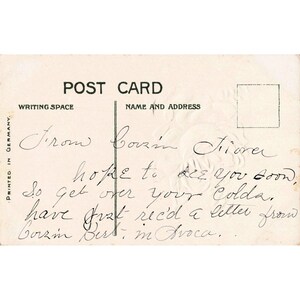 POST CARD
WRITING SPACE
NAME AND ADDRESS
PRINTED IN GERMANY
From Cousin
hope to see you soon
So get over your Colds.
have Just rec'd a letter from
Cousin Bert. in Avoca.